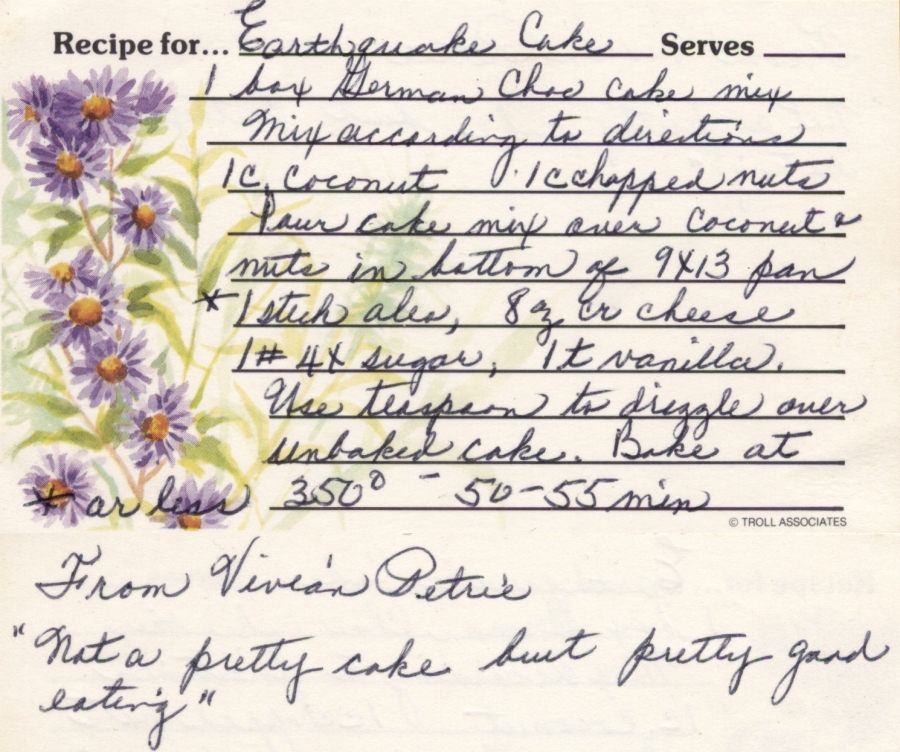 Recipe for... Earthquake Cake Serves
1 box German Choc cake mix
Mix according to directions
1c. coconut 1c chopped nuts
Pour cake mix over coconut &
nuts in bottom of 9X13 pan
* 1 stick oleo, 8 oz cr cheese
1# 4X sugar, 1t vanilla.
Use teaspoon to drizzle over
unbaked cake. Bake at
* or less 350° - 50-55 min
© TROLL ASSOCIATES
From Vivian Petrie
"Not a pretty cake but pretty good
eating"